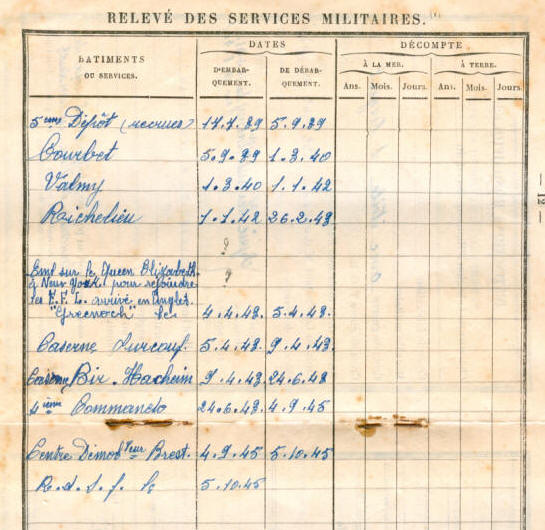 RELEVÉ DES SERVICES MILITAIRES. (1)
BATIMENTS OU SERVICES. DATES DÉCOMPTE
D'EMBAR-QUEMENT. DE DÉBAR-QUEMENT. À LA MER. À TERRE.
Ans. Mois. Jours. Ans. Mois. Jours
5ème Dépôt (recrues) 17.7.39 5.9.39
Courbet 5.9.39 1.3.40
Valmy 1.3.40 1.1.42
Richelieu 1.1.42 26.2.43
?
Emb sur le Queen Elizabeth ?
à New York pour rejoindre
les F.F.L. arrivé en Anglet.
"Greenoch" le 4.4.43. 5.4.43.
Caserne Surcouf. 5.4.43. 9.4.43.
Caserne Bir. Hacheim 9.4.43 24.6.43
4ième Commando 24.6.43. 4.9.45
Centre Démobteur Brest. 4.9.45 5.10.45
R.d.s.f. le 5.10.45
— 12 —